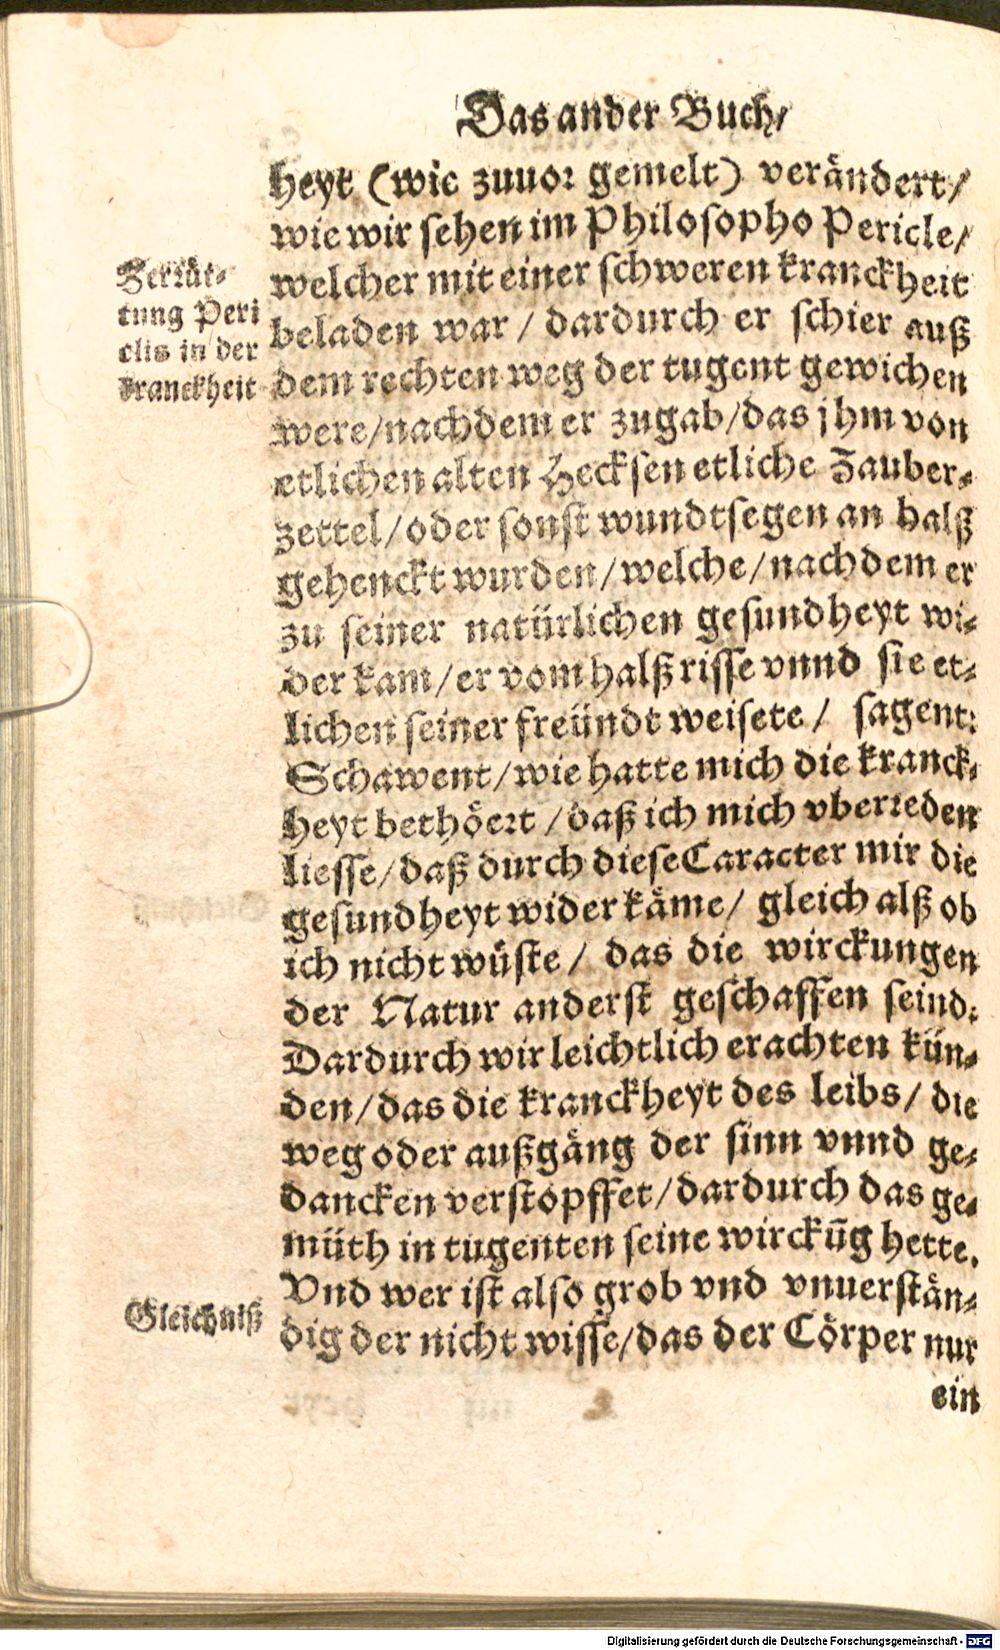 Das ander Buch/
heyt (wie zuuor gemelt) verändert/
wie wir sehen im Philosopho Pericle/
welcher mit einer schweren kranckheit
beladen war / dardurch er schier auß
dem rechten weg der tugent gewichen
were/nachdem er zugab/das jhm von
etlichen alten Hecksen etliche Zauber-
zettel/oder sonst wundtsegen an halß
gehenckt wurden/welche/nachdem er
zu seiner natürlichen gesundheyt wi-
der kam/er vom halß risse vnnd sie et-
lichen seiner freündt weisete / sagent:
Schawent/wie hatte mich die kranck-
heyt bethöert / daß ich mich vberreden
liesse/daß durch diese Caracter mir die
gesundheyt wider käme/ gleich alß ob
ich nicht wüste / das die wirckungen
der Natur anderst geschaffen seind:
Dardurch wir leichtlich erachten kün-
den/das die kranckheyt des leibs/ die
weg oder außgäng der sinn vnnd ge-
dancken verstopffet/dardurch das ge-
müth in tugenten seine wirckūg hette.
Vnd wer ist also grob vnd vnuerstän-
dig der nicht wisse/das der Cörper nur
ein
Zerrüt-
tung Peri
clis in der
kranckheit
Gleichniß
Digitalisierung gefördert durch die Deutsche Forschungsgemeinschaft - DFG